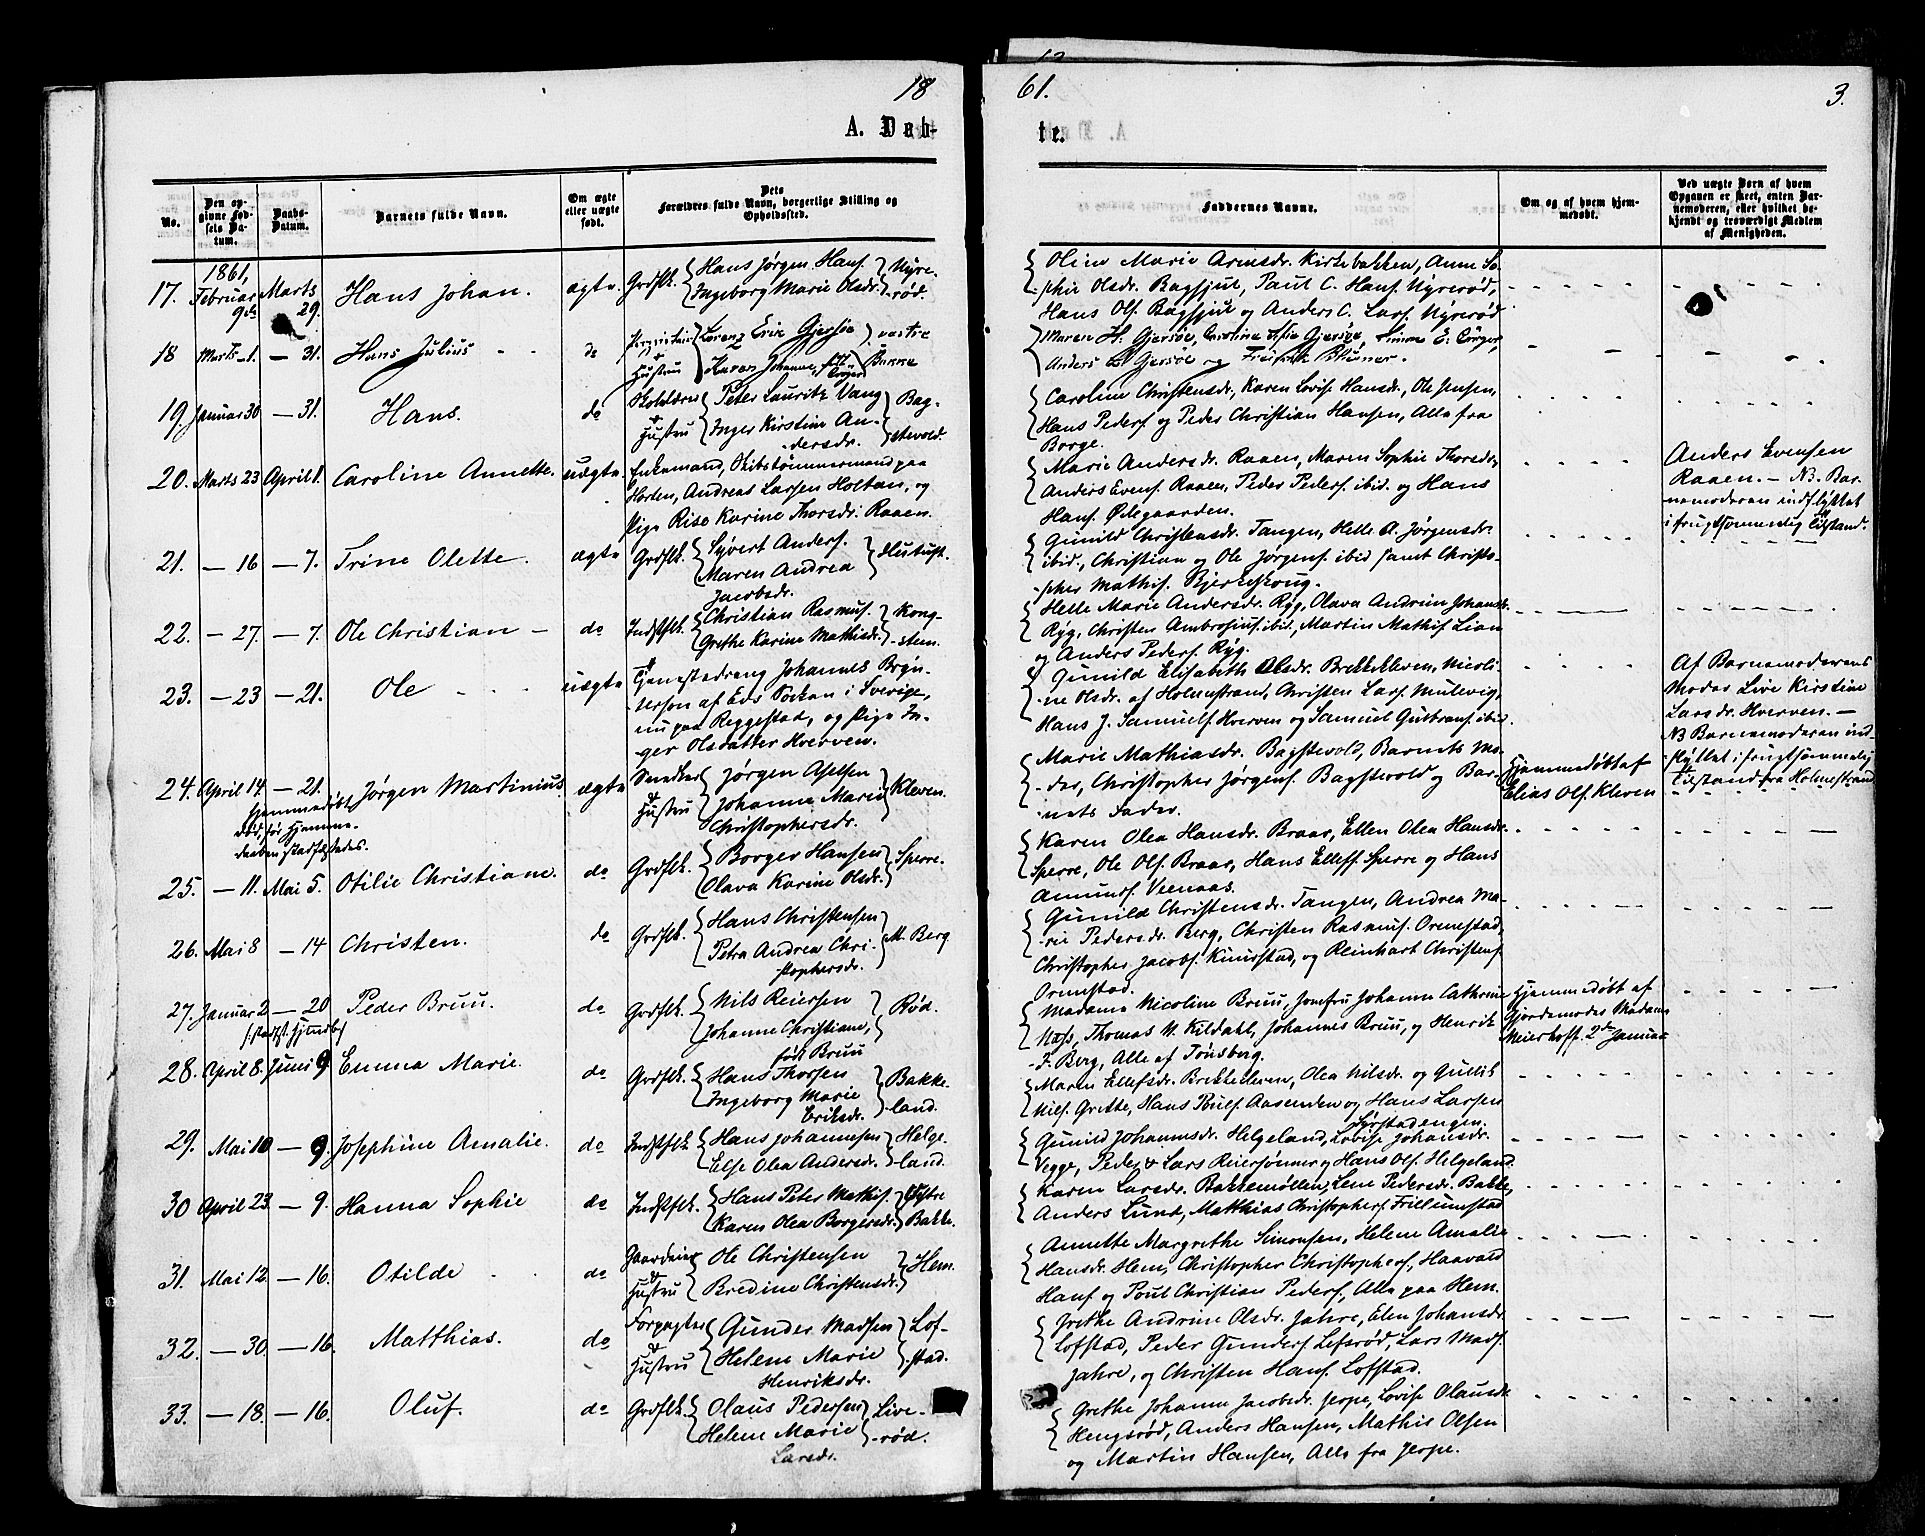 18
61.
3.
A. Døb-
te.
No.
Den op-
givne Fød-
sels Da-
tum.
Daabs-
Datum.
Barnets fulde Navn.
Om ægte
eller uægte
født.
Dets
Forældres fulde Navn, borgerlige Stilling og
Opholdssted.
Faddernes Navne.
Om og af hvem hjem-
medøbt.
Ved uægte Børn af hvem
Opgaven er skeet, enten Bar-
nemoderen, eller hvilket be-
kjendt og troværdigt Medlem
af Menigheden.
1861,
17. Februar 9de Marts 29. Hans Johan. ægte. Grdflk. Hans Jørgen Hans. Nyre-
Ingeborg Marie Olsdr. -rød.
Oline Marie Arnesdr. Kirkebakken, Anne So-
-phie Olsdr. Bagsjul, Paul C. Hans. Nyrerød,
Hans Ols. Bagsjul og Anders C. Lars. Nyrerød
18 Marts 1. — 31. Hans Julius do
Hustru Lorenz Eric Gjersøe vestre
Karen Johanne, født Bakke
Maren H. Gjersøe, Caroline Sofie Gjersøe, Simine E.
Anders Gjersøe og
19. Januar 30 — 31. Hans. do Skolelærer Peter Lauritz Vang Bag-
& Hustru Inger Kirstine An- -stevold.
-dersdr.
Caroline Christensdr., Karen Lovise Hansdr., Ole Jensen,
Hans Peders. og Peder Christian Hansen, Alle fra
Borge.
20. Marts 23 April 1. Caroline Annette. uægte. Enkemand, Skibstømmermand paa
Horten, Andreas Larsen Holtan, og
Pige Rise Karine Thorsdr. Raaen.
Marie Andersdr. Raaen, Maren Sophie Thorsdr.,
Anders Evens. Raaen, Peder Peders. ibid. og Hans
Hans. Ødegaarden.
Anders Evensen
Raaen. — NB. Bar-
nemoderen indflyttet
i frugtsommelig Tilstand.
21. — 16 — 7. Trine Olette. ægte Grdflk. Syvert Anders.
Maren Andrea
Jacobsdr.
Gunild Christensdr. Tangen, Helle A. Jørgensdr.
ibid., Christian og Ole Jørgens. ibid samt Christo-
-pher Mathis. Bjerkeskoug.
22. — 27. — 7. Ole Christian — do Indstflk. Christian Rasmus. Kong-
Grethe Karine Mathisdr. -stem.
Helle Marie Andersdr. Ryg, Olava Andrine Johansdr.
Ryg, Christen Ambrosius. ibid., Martin Mathis. Lian
og Anders Peders. Ryg.
23. — 23 — 21. Ole uægte Tjenestedreng Johannes Bryn-
-terson af Eds Sockan i Sverige,
nu paa Reggestad, og Pige In-
ger Olsdatter Hverven.
Gunild Elisabeth Olsdr. Brekkekleven, Nicoli-
-ne Olsdr. af Holmestrand, Christen Lars. Mulevig,
Hans J. Samuels. Hverven og Samuel Gulbrans. ibid.
Af Barnemoderens
Moder Live Kirstine
Larsdr. Hverven. —
NB Barnemoderen ind-
-flyttet i frugtsommelig
Tilstand fra Holmestrand.
24. April 14. — 21. Jørgen Martinius. ægte Snedker Jørgen Axelsen
& Hustru Johanne Marie Kleven.
Christophersdr.
hjemmedøbt
død, før Hjemme-
daaben stadfæstedes.
Marie Mathiasdr. Bagstevold, Barnets Mo-
-der, Christopher Jørgens. Bagstevold og Bar-
nets Fader.
Hjemmedøbt af
Elias Ols. Kleven
25. — 11. Mai 5. Otilie Christiane. do Grdflk. Borger Hansen Sperre.
Olava Karine Olsdr.
Karen Olea Hansdr. Braar, Ellen Olea Hansdr.
Sperre, Ole Ols. Braar, Hans Ellefs. Sperre og Hans
Amunds. Veenaas.
26. Mai 8 — 14 Christen. do Grdflk. Hans Christensen
Petra Andrea Chri- M. Berg
stophersdr.
Gunild Christensdr. Tangen, Andrea Ma-
-rie Pedersdr. Berg, Christen Rasmus. Ormestad,
Christopher Jacobs. Kimestad, og Reinhart Christens.
Ormestad.
27. Januar 2 — 20 Peder Bruu. do Grdflk. Nils Reiersen Rød.
Johanne Christiane,
født Bruu
Madame Nicoline Bruu, Jomfru Johanne Cathrine
Næss, Thomas W. Kildahl, Johannes Bruu, og Henrik
F. Berg, Alle af Tønsberg.
Hjemmedøbt af
Gjordemoder Madame
Meierhoff. 2de Januar
28. April 8. Juni 9. Emma Marie. do Grdflk. Hans Thorsen Bakke-
Ingeborg Marie -land.
Eriksdr.
Maren Ellefsdr. Brekkekleven, Olea Nilsdr. og Gullik
Nils. Grette, Hans Pouls. Aasenden og Hans Larsen
Sørstadengen.
29. Mai 10 — 9. Josephine Amalie. do Indstflk. Hans Johannesen Helge-
Else Olea Andersdr. -land.
Gunild Johannsdr. Helgeland, Lovise Johansdr.
Vegge, Peder & Lars Reiersønner og Hans Ols. Helgeland.
30 April 23. — 9. Hanna Sophie do Indstflk. Hans Peter Mathis. Østre
Karen Olea Borgersdr. Bakke.
Karen Larsdr. Bakkemøllen, Lene Pedersdr. Bakke,
Anders Lund, Matthias Christophers. Frillumstad
31. Mai 12. — 16. Otilde do Gaardeier Ole Christensen Hem.
& Hustru Bredine Christensdr.
Annette Margrethe Simonsen, Helene Amalie
Hansdr. Hem, Christopher Christophers., Haavald
Hans. og Poul Christian Peders., Alle paa Hem.
32. — 30. — 16. Matthias. do Forpagter Gunder Madsen Lof-
& Hustru Helene Marie -stad.
Henriksdr.
Grethe Andrine Olsdr. Jahre, Elen Johansdr.
Lofstad, Peder Gunders. Lefsrød, Lars Mads.
Jahre, og Christen Hans. Lofstad.
33. — 18. — 16. Oluf. do Grdflk. Olaus Pedersen Live-
Helene Marie -rød.
Larsdr.
Grethe Johanne Jacobsdr. Jerpe, Lovise Olausdr.
Hengsrød, Anders Hansen, Mathis Olsen
og Martin Hansen, Alle fra Jerpe.